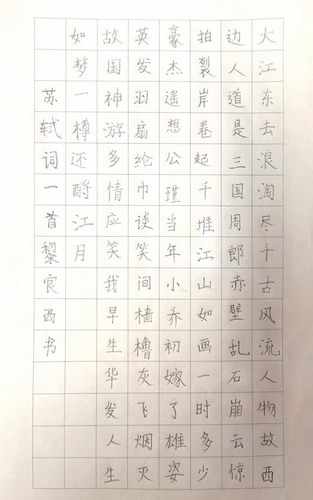 大江东去浪淘尽千古风流人物故西
边人道是三国周郎赤壁乱石崩云惊
拍裂岸卷起千堆江山如画一时多少
豪杰遥想公瑾当年小乔初嫁了雄姿
英发羽扇纶巾谈笑间樯橹灰飞烟灭
故国神游多情应笑我早生华发人生
如梦一樽还酹江月
苏轼词一首黎宸西书